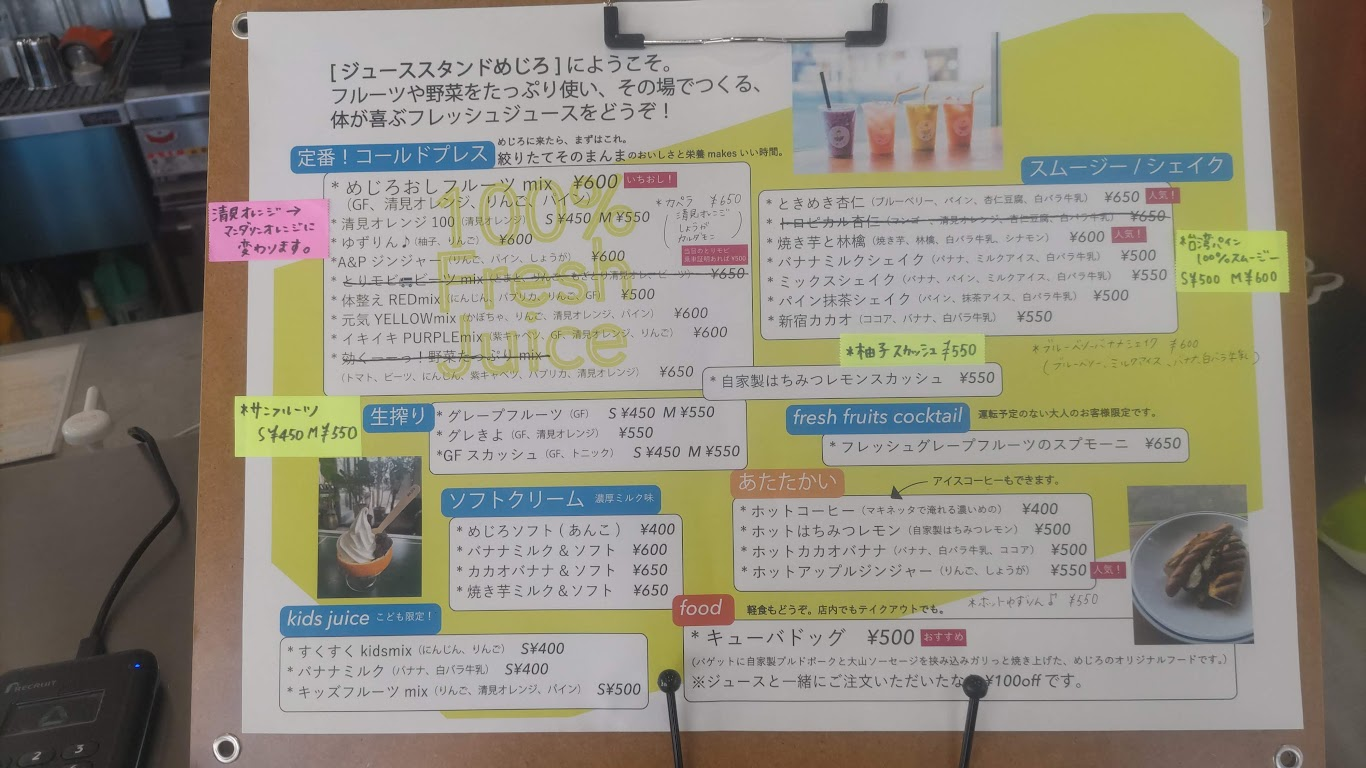 [ ジューススタンドめじろ ] にようこそ。
フルーツや野菜をたっぷり使い、その場でつくる、
体が喜ぶフレッシュジュースをどうぞ！
定番！コールドプレス
めじろに来たら、まずはこれ。
絞りたてそのまんまのおいしさと栄養 makes いい時間。
100% Fresh Juice
* めじろおしフルーツ mix ¥600 いちおし！
(GF、清見オレンジ、りんご、パイン)
* 清見オレンジ 100 (清見オレンジ) S ¥450 M ¥550
* ゆずりん♪ (柚子、りんご) ¥600
*A&P ジンジャー (りんご、パイン、しょうが) ¥600
* とりモビ ビーツ mix ¥650
* 体整え REDmix (にんじん、パプリカ、りんご、GF) ¥500
* 元気 YELLOWmix (かぼちゃ、りんご、清見オレンジ、パイン) ¥600
* イキイキ PURPLEmix (紫キャベツ、GF、清見オレンジ、りんご) ¥600
* 効くーーっ！野菜たっぷり mix
(トマト、ビーツ、にんじん、紫キャベツ、パプリカ、清見オレンジ) ¥650
清見オレンジ→
マンダリンオレンジに
変わります。
*カペラ ¥650
(清見オレンジ
しょうが
カルダモン)
当日のとりモビ
乗車証明あれば ¥500
スムージー / シェイク
* ときめき杏仁 (ブルーベリー、パイン、杏仁豆腐、白バラ牛乳) ¥650 人気！
* トロピカル杏仁 (マンゴー、清見オレンジ、杏仁豆腐、白バラ牛乳) ¥650
* 焼き芋と林檎 (焼き芋、林檎、白バラ牛乳、シナモン) ¥600 人気！
* バナナミルクシェイク (バナナ、ミルクアイス、白バラ牛乳) ¥500
* ミックスシェイク (バナナ、パイン、ミルクアイス、白バラ牛乳) ¥550
* パイン抹茶シェイク (パイン、抹茶アイス、白バラ牛乳) ¥500
* 新宿カカオ (ココア、バナナ、白バラ牛乳) ¥550
*台湾パイン
100%スムージー
S¥500 M¥600
*柚子スカッシュ ¥550
*ブルーベリーバナナシェイク ¥600
(ブルーベリー、ミルクアイス、バナナ、白バラ牛乳)
* 自家製はちみつレモンスカッシュ ¥550
*サンフルーツ
S¥450 M¥550
生搾り
* グレープフルーツ (GF) S ¥450 M ¥550
* グレきよ (GF、清見オレンジ) ¥550
*GF スカッシュ (GF、トニック) S ¥450 M ¥550
fresh fruits cocktail 運転予定のない大人のお客様限定です。
* フレッシュグレープフルーツのスプモーニ ¥650
ソフトクリーム 濃厚ミルク味
* めじろソフト ( あんこ ) ¥400
* バナナミルク & ソフト ¥600
* カカオバナナ & ソフト ¥650
* 焼き芋ミルク & ソフト ¥650
あたたかい
アイスコーヒーもできます。
* ホットコーヒー (マキネッタで淹れる濃いめの) ¥400
* ホットはちみつレモン (自家製はちみつレモン) ¥500
* ホットカカオバナナ (バナナ、白バラ牛乳、ココア) ¥500
* ホットアップルジンジャー (りんご、しょうが) ¥550 人気！
*ホットゆずりん♪ ¥550
kids juice こども限定！
* すくすく kidsmix (にんじん、りんご) S¥400
* バナナミルク (バナナ、白バラ牛乳) S¥400
* キッズフルーツ mix (りんご、清見オレンジ、パイン) S¥500
food 軽食もどうぞ。店内でもテイクアウトでも。
* キューバドッグ ¥500 おすすめ
(バゲットに自家製プルドポークと大山ソーセージを挟み込みガリっと焼き上げた、めじろのオリジナルフードです。)
※ジュースと一緒にご注文いただいたな ¥100off です。
RECRUIT
2 3